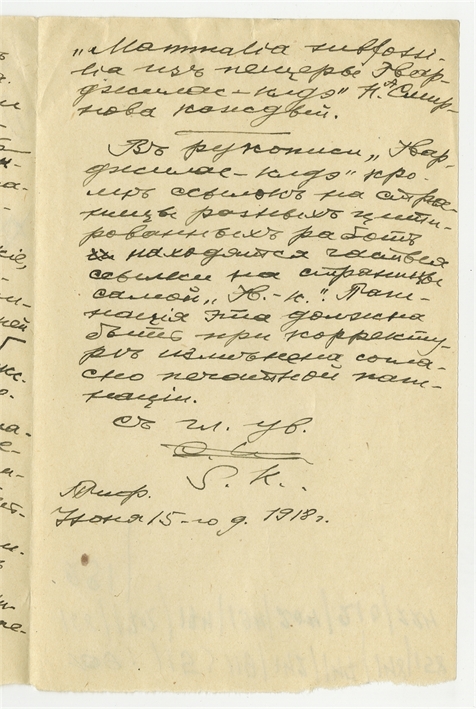 „Mammalia subfossi-
lia изъ пещеры Гвар-
джилас-клдэ" Н.А. Смир-
нова каждый.
Въ рукописи „Гвар-
джилас-клдэ" кро-
мѣ ссылокъ на стра-
ницы разныхъ цити-
рованныхъ работъ
находятся частыя
ссылки на страницы
самой „Г.-к.". Паги-
нація эта должна
быть при корректу-
рѣ измѣнена согла-
сно печатной паги-
націи.
Съ гл. ув.
S. K.
Тиф.
Іюня 15-го д. 1918 г.